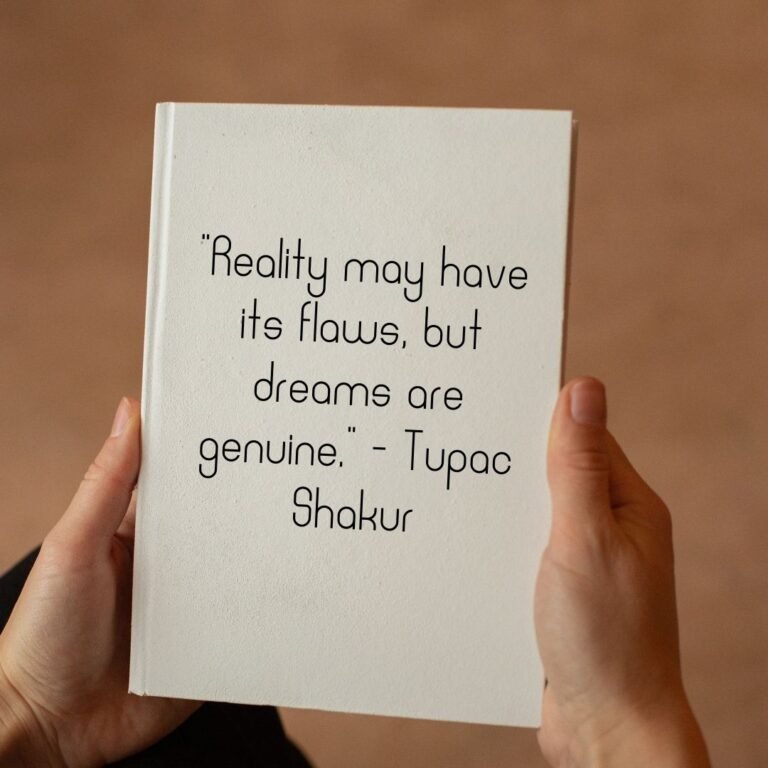 "Reality may have
its flaws, but
dreams are
genuine." - Tupac
Shakur